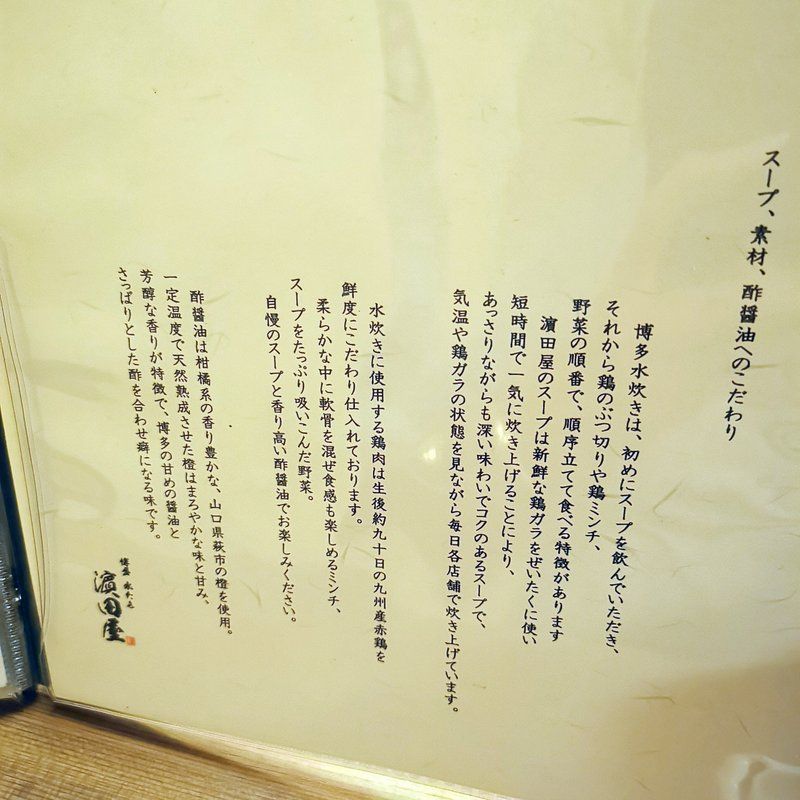 スープ、素材、酢醤油へのこだわり
博多水炊きは、初めにスープを飲んでいただき、
それから鶏のぶつ切りや鶏ミンチ、
野菜の順番で、順序立てて食べる特徴があります
濱田屋のスープは新鮮な鶏ガラをぜいたくに使い
短時間で一気に炊き上げることにより、
あっさりながらも深い味わいでコクのあるスープで、
気温や鶏ガラの状態を見ながら毎日各店舗で炊き上げています。
水炊きに使用する鶏肉は生後約九十日の九州産赤鶏を
鮮度にこだわり仕入れております。
柔らかな中に軟骨を混ぜ食感も楽しめるミンチ、
スープをたっぷり吸いこんだ野菜。
自慢のスープと香り高い酢醤油でお楽しみください。
酢醤油は柑橘系の香り豊かな、山口県萩市の橙を使用。
一定温度で天然熟成させた橙はまろやかな味と甘み、
芳醇な香りが特徴で、博多の甘めの醤油と
さっぱりとした酢を合わせ癖になる味です。
博多 水たき
濵田屋